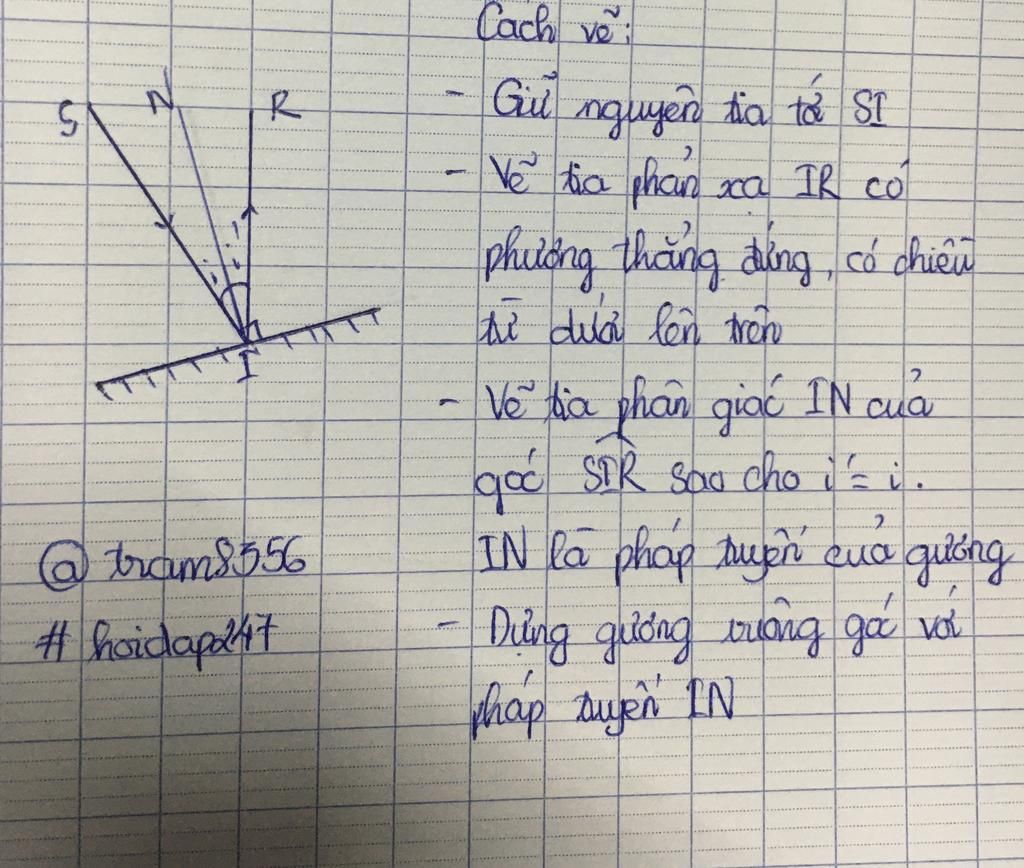 Cách vẽ:
S N R
- Giữ nguyên tia tới SI
- Vẽ tia phản xạ IR có
phương thẳng đứng, có chiều
từ dưới lên trên
I
- Vẽ tia phân giác IN của
góc SIR sao cho i' = i.
@ tram8356
IN là pháp tuyến của gương
# hoidap247
- Dựng gương vuông góc với
pháp tuyến IN